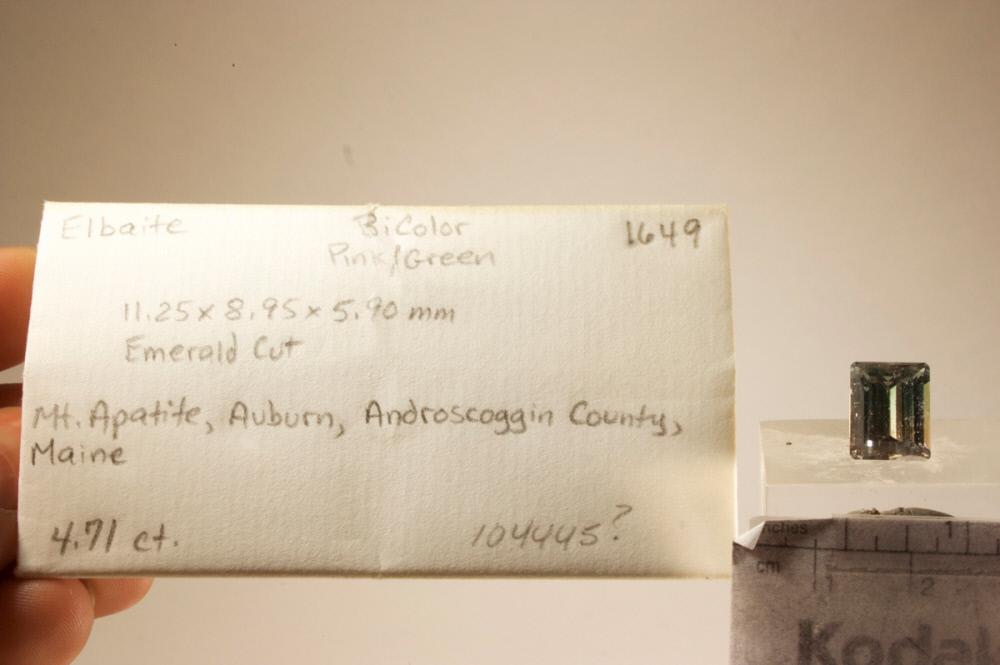 Elbaite BiColor 1649
Pink/Green
11.25 x 8.95 x 5.90 mm
Emerald Cut
Mt. Apatite, Auburn, Androscoggin County,
Maine
4.71 ct. 104445?
inches 1
cm 1 2
Kodak